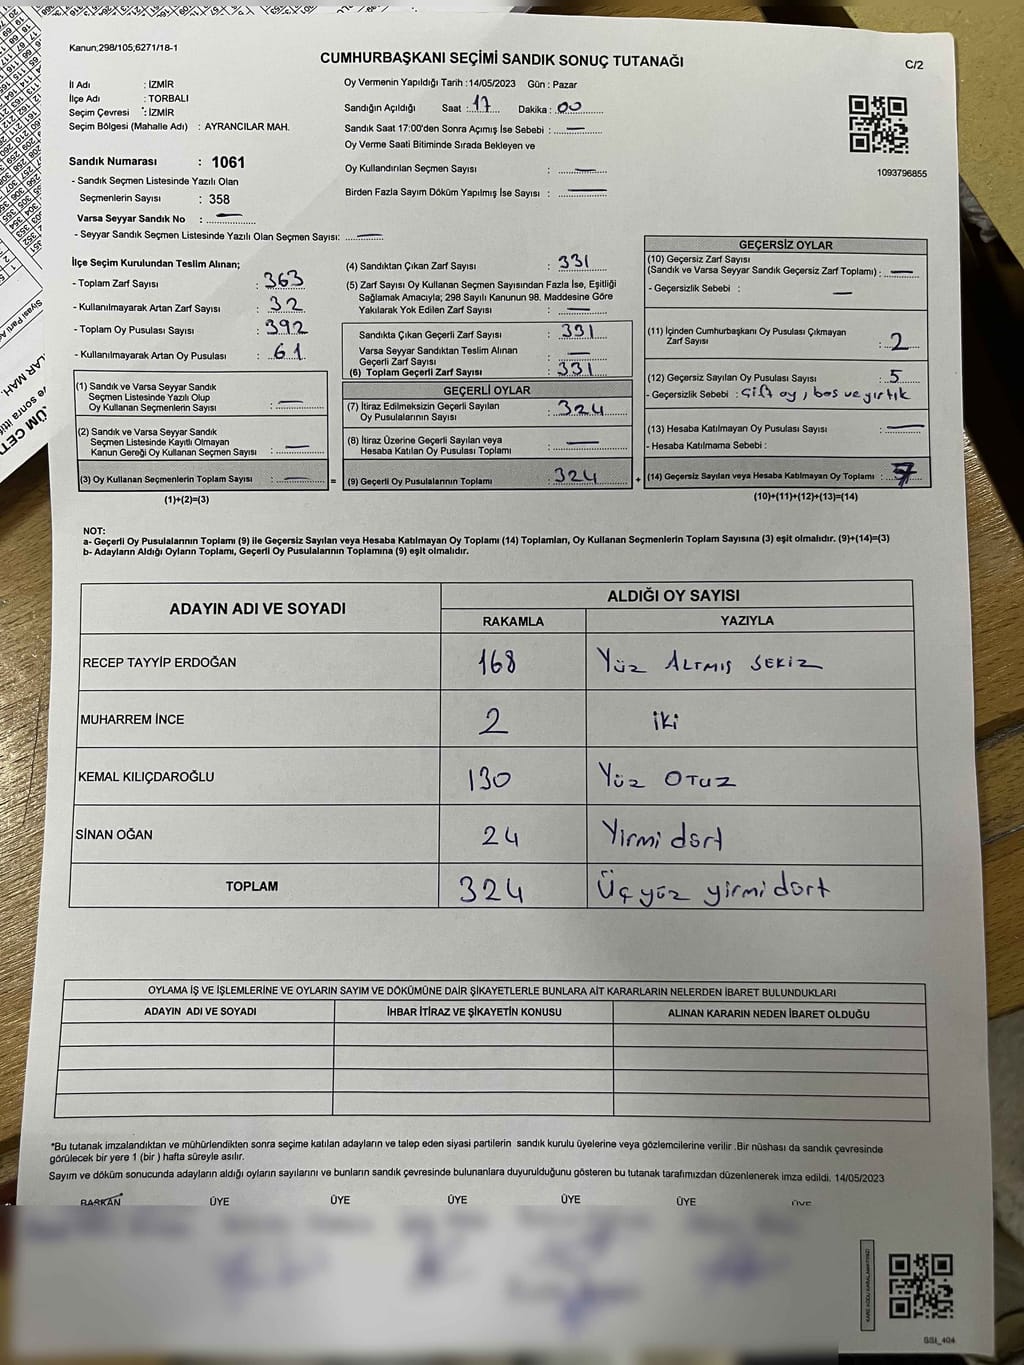 Kanun;298/105,6271/18-1
CUMHURBAŞKANI SEÇİMİ SANDIK SONUÇ TUTANAĞI
C/2
İl Adı : İZMİR
İlçe Adı : TORBALI
Seçim Çevresi : İZMİR
Seçim Bölgesi (Mahalle Adı) : AYRANCILAR MAH.
Oy Vermenin Yapıldığı Tarih :14/05/2023 Gün : Pazar
Sandığın Açıldığı Saat : 17 Dakika : 00
Sandık Saat 17:00'den Sonra Açımış İse Sebebi : —
Oy Verme Saati Bitiminde Sırada Bekleyen ve
Oy Kullandırılan Seçmen Sayısı : —
Birden Fazla Sayım Döküm Yapılmış İse Sayısı : —
1093796855
Sandık Numarası : 1061
- Sandık Seçmen Listesinde Yazılı Olan
Seçmenlerin Sayısı : 358
Varsa Seyyar Sandık No : —
- Seyyar Sandık Seçmen Listesinde Yazılı Olan Seçmen Sayısı: —
İlçe Seçim Kurulundan Teslim Alınan;
- Toplam Zarf Sayısı : 363
- Kullanılmayarak Artan Zarf Sayısı : 32
- Toplam Oy Pusulası Sayısı : 392
- Kullanılmayarak Artan Oy Pusulası : 61
(1) Sandık ve Varsa Seyyar Sandık
Seçmen Listesinde Yazılı Olup
Oy Kullanan Seçmenlerin Sayısı : —
(2) Sandık ve Varsa Seyyar Sandık
Seçmen Listesinde Kayıtlı Olmayan
Kanun Gereği Oy Kullanan Seçmen Sayısı : —
(3) Oy Kullanan Seçmenlerin Toplam Sayısı : — =
(1)+(2)=(3)
(4) Sandıktan Çıkan Zarf Sayısı : 331
(5) Zarf Sayısı Oy Kullanan Seçmen Sayısından Fazla İse, Eşitliği
Sağlamak Amacıyla; 298 Sayılı Kanunun 98. Maddesine Göre
Yakılarak Yok Edilen Zarf Sayısı : —
Sandıkta Çıkan Geçerli Zarf Sayısı : 331
Varsa Seyyar Sandıktan Teslim Alınan
Geçerli Zarf Sayısı : —
(6) Toplam Geçerli Zarf Sayısı : 331
GEÇERLİ OYLAR
(7) İtiraz Edilmeksizin Geçerli Sayılan
Oy Pusulalarının Sayısı : 324
(8) İtiraz Üzerine Geçerli Sayılan veya
Hesaba Katılan Oy Pusulası Toplamı : —
(9) Geçerli Oy Pusulalarının Toplamı : 324 +
GEÇERSİZ OYLAR
(10) Geçersiz Zarf Sayısı
(Sandık ve Varsa Seyyar Sandık Geçersiz Zarf Toplamı) : —
- Geçersizlik Sebebi : —
(11) İçinden Cumhurbaşkanı Oy Pusulası Çıkmayan
Zarf Sayısı : 2
(12) Geçersiz Sayılan Oy Pusulası Sayısı : 5
- Geçersizlik Sebebi : Çift oy, bos ve yırtık
(13) Hesaba Katılmayan Oy Pusulası Sayısı : —
- Hesaba Katılmama Sebebi :
(14) Geçersiz Sayılan veya Hesaba Katılmayan Oy Toplamı : 7
(10)+(11)+(12)+(13)=(14)
NOT:
a- Geçerli Oy Pusulalarının Toplamı (9) ile Geçersiz Sayılan veya Hesaba Katılmayan Oy Toplamı (14) Toplamları, Oy Kullanan Seçmenlerin Toplam Sayısına (3) eşit olmalıdır. (9)+(14)=(3)
b- Adayların Aldığı Oyların Toplamı, Geçerli Oy Pusulalarının Toplamına (9) eşit olmalıdır.
ADAYIN ADI VE SOYADI
ALDIĞI OY SAYISI
RAKAMLA YAZIYLA
RECEP TAYYİP ERDOĞAN 168 Yüz ALTMIŞ SEKİZ
MUHARREM İNCE 2 iki
KEMAL KILIÇDAROĞLU 130 Yüz OTUZ
SİNAN OĞAN 24 Yirmi dört
TOPLAM 324 Üç yüz yirmi dört
OYLAMA İŞ VE İŞLEMLERİNE VE OYLARIN SAYIM VE DÖKÜMÜNE DAİR ŞİKAYETLERLE BUNLARA AİT KARARLARIN NELERDEN İBARET BULUNDUKLARI
ADAYIN ADI VE SOYADI İHBAR İTİRAZ VE ŞİKAYETİN KONUSU ALINAN KARARIN NEDEN İBARET OLDUĞU
*Bu tutanak imzalandıktan ve mühürlendikten sonra seçime katılan adayların ve talep eden siyasi partilerin sandık kurulu üyelerine veya gözlemcilerine verilir .Bir nüshası da sandık çevresinde
görülecek bir yere 1 (bir ) hafta süreyle asılır.
Sayım ve döküm sonucunda adayların aldığı oyların sayılarını ve bunların sandık çevresinde bulunanlara duyurulduğunu gösteren bu tutanak tarafımızdan düzenlenerek imza edildi. 14/05/2023
BAŞKAN ÜYE ÜYE ÜYE ÜYE ÜYE ÜYE
KARE KODU KARALAMAYINIZ!
GSI_404